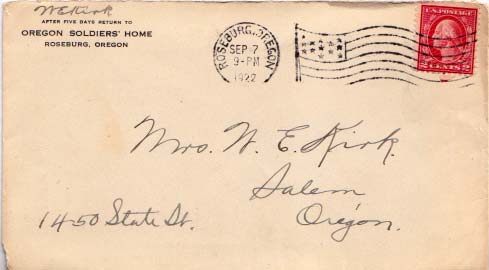 W E Kirk
AFTER FIVE DAYS RETURN TO
OREGON SOLDIERS' HOME
ROSEBURG, OREGON
ROSEBURG, OREGON
SEP 7
9-PM
1922
U.S. POSTAGE
2 CENTS 2
Mrs. W. E. Kirk.
Salem
Oregon.
1450 State St.